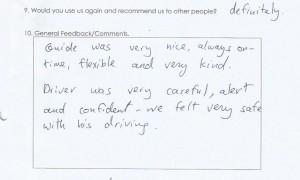 9. Would you use us again and recommend us to other people? definitely.
10. General Feedback/Comments.
Guide was very nice, always on-
time, flexible and very kind.
Driver was very careful, alert
and confident - we felt very safe
with his driving.